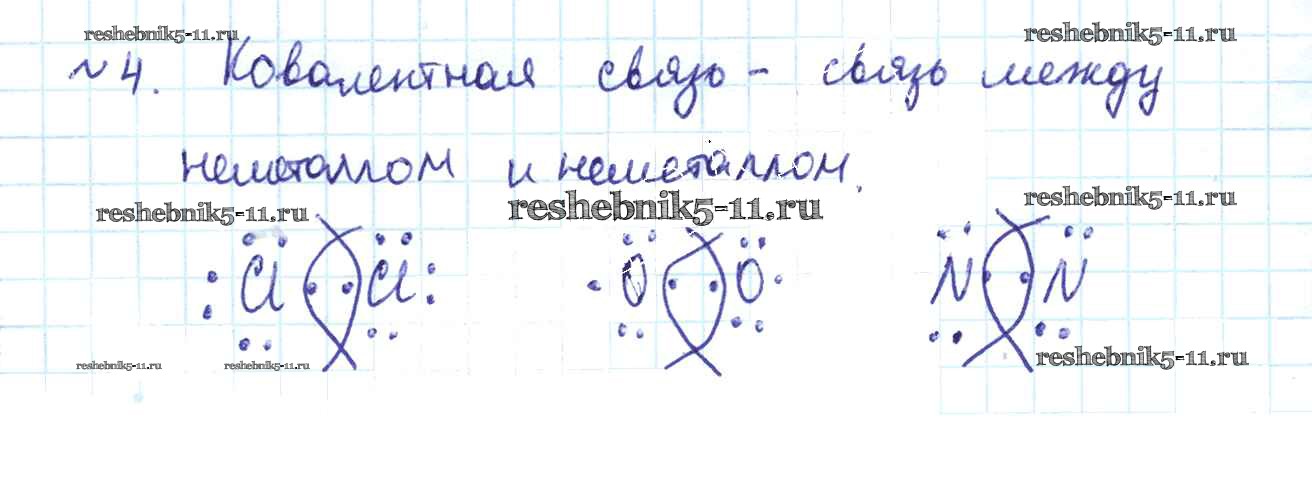 reshebnik5-11.ru
reshebnik5-11.ru
№4. Ковалентная связь - связь между
неметаллом и неметаллом.
reshebnik5-11.ru
reshebnik5-11.ru
reshebnik5-11.ru
Cl Cl O O N N
reshebnik5-11.ru
reshebnik5-11.ru
reshebnik5-11.ru